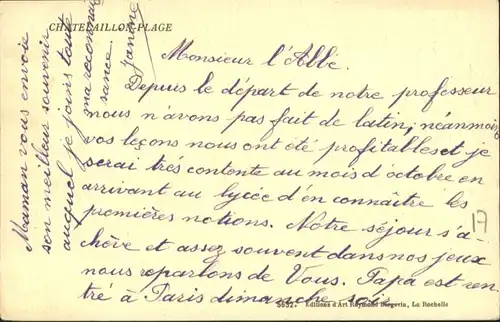 CHATELAILLON-PLAGE
Monsieur l'Abbé.
Depuis le départ de notre professeur
nous n'avons pas fait de latin; néanmoins
vos leçons nous ont été profitables et je
serai très contente au mois d'octobre en
arrivant au lycée d'en connaître les
premières notions. Notre séjour s'a-
chève et assez souvent dans nos jeux
nous reparlons de Vous. Papa est ren-
tré à Paris dimanche soir
Maman vous envoie
son meilleur souvenir
auquel je joins toute
ma reconnais
sance.
Janine
17
5632. Editions d'Art Raymond Bergevin, La Rochelle